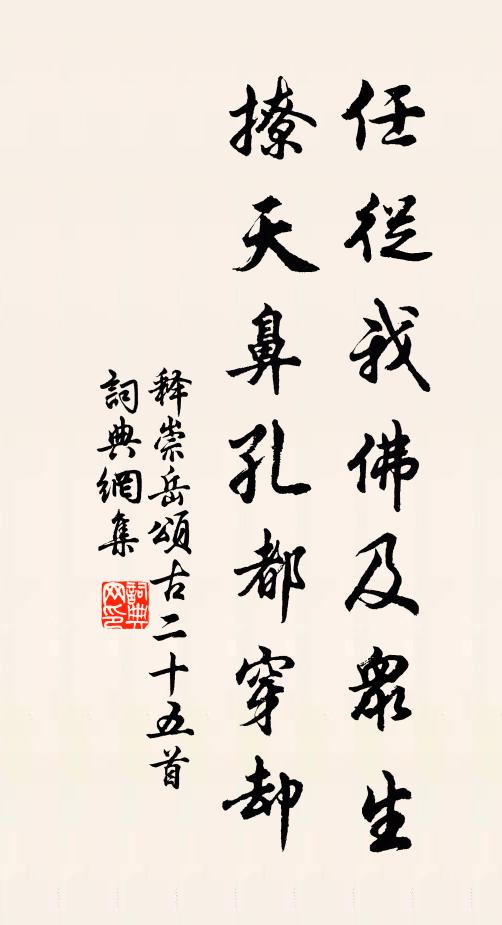 任從我佛及眾生
撩天鼻孔都穿却
释崇岳頌古二十五首
詞典網集
詞典网印